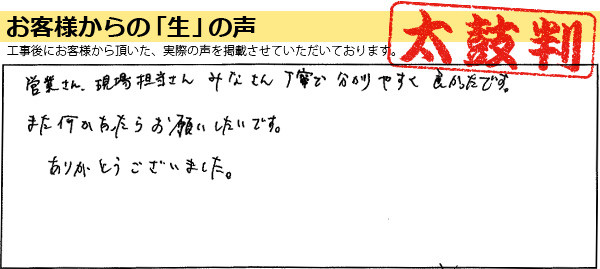 お客様からの「生」の声
太鼓判
工事後にお客様から頂いた、実際の声を掲載させていただいております。
営業さん、現場担当さん みなさん 丁寧で 分かりやすく 良かったです。
また何かあったら お願いしたいです。
ありがとうございました。